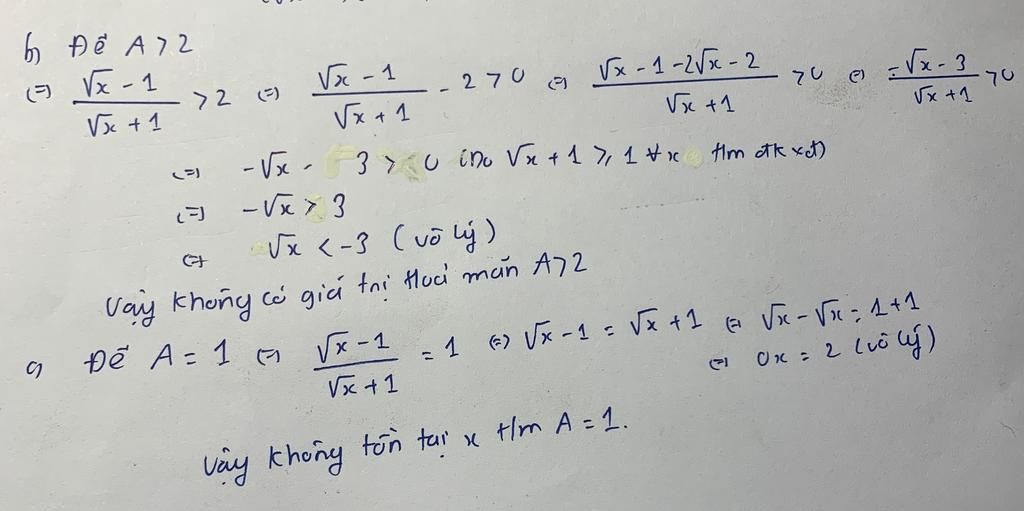 b) Để A > 2
(=) (√x - 1)/(√x + 1) > 2 (=) (√x - 1)/(√x + 1) - 2 > 0 (=) (√x - 1 - 2√x - 2)/(√x + 1) > 0 (=) (-√x - 3)/(√x + 1) > 0
(=) -√x - 3 > 0 (Do √x + 1 ≥ 1 ∀x t/m đk xđ)
(=) -√x > 3
(=) √x < -3 (vô lý)
Vậy không có giá trị thoả mãn A > 2
c) Để A = 1 (=) (√x - 1)/(√x + 1) = 1 (=) √x - 1 = √x + 1 (=) √x - √x = 1 + 1
(=) 0x = 2 (vô lý)
Vậy không tồn tại x t/m A = 1.